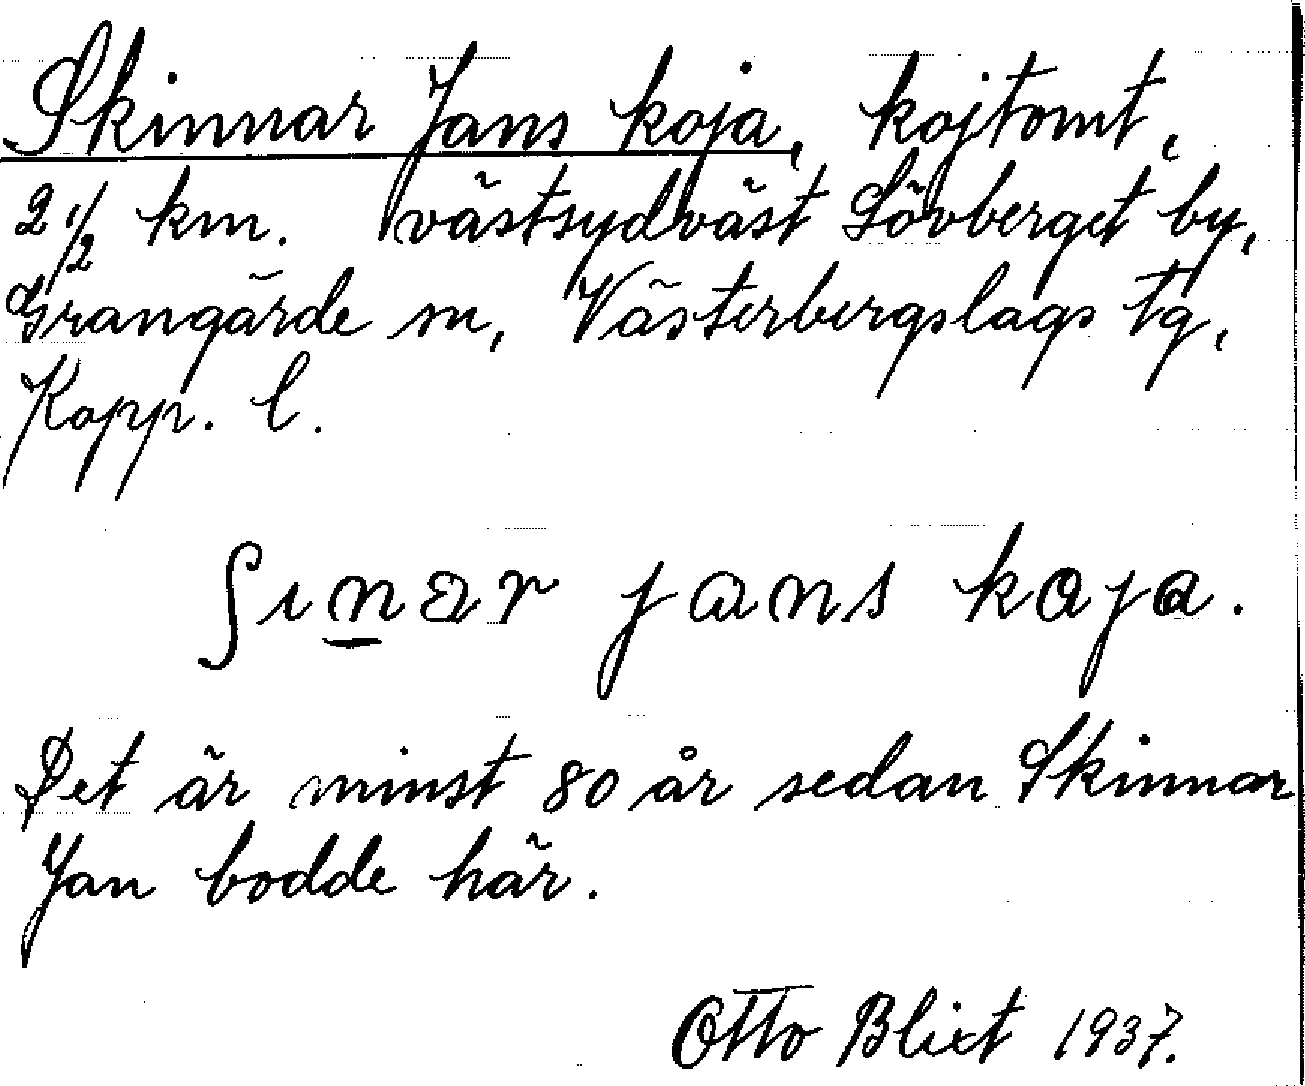 Skinnar Jans koja, kojtomt,
2 1/2 km. västsydväst Lövberget by,
Grangärde sn, Västerbergslags tg,
Kopp. l.
ʃınar jans koja.
Det är minst 80 år sedan Skinnar
Jan bodde här.
Otto Blixt 1937.